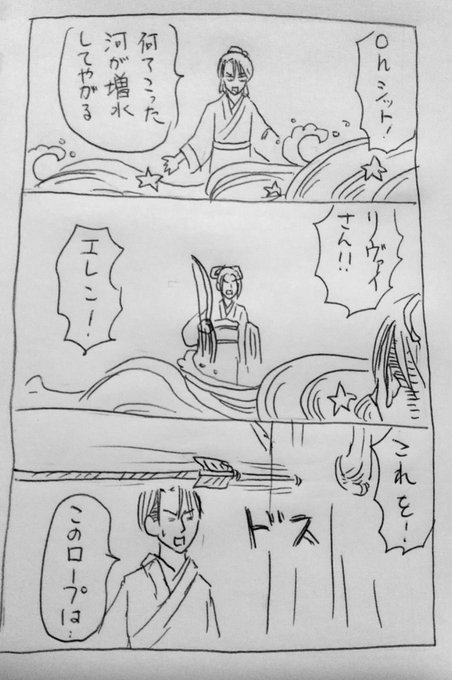 Ohシット!
何てこった
河が増水
してやがる
リヴァイ
さん!!
エレン!
これを!
ドス
このロープは…